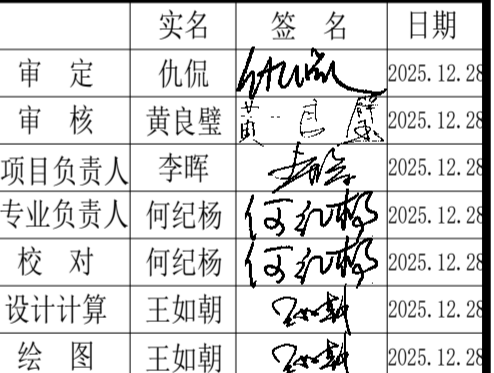 实名 签 名 日期
审 定 仇侃 仇侃 2025.12.28
审 核 黄良璧 黄良璧 2025.12.28
项目负责人 李晖 李晖 2025.12.28
专业负责人 何纪杨 何纪杨 2025.12.28
校 对 何纪杨 何纪杨 2025.12.28
设计计算 王如朝 王如朝 2025.12.28
绘 图 王如朝 王如朝 2025.12.28